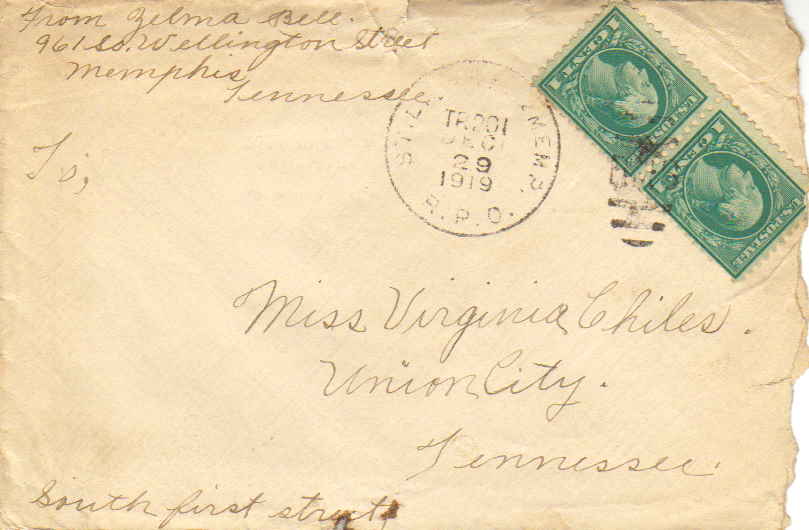 From Zelma Bell.
961 So. Wellington Street
Memphis
Tennessee
ST. L. MEM.
TR 201
DEC
29
1919
R.P.O.
1 CENT 1
U.S. POSTAGE
1 CENT 1
U.S. POSTAGE
To,
Miss Virginia Chiles.
Union City.
Tennessee.
South first street